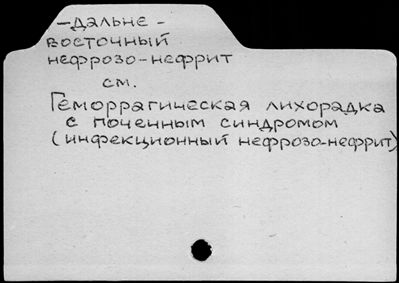 –дальне-
восточный
нефрозо-нефрит
см.
Геморрагическая лихорадка
с поченным синдромом
(инфекционный нефрозо-нефрит)